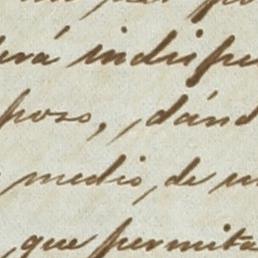 erá indispe
poso, dánd
medio, de un
, que permita